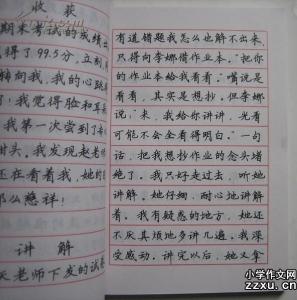 收获
期末考试的成绩出
得了99.5分，
转向我，我的心跳
！我觉得脸和耳
我第一次尝到了
甜头。我发现赵老师
还在看着我，她的
那么慈祥！
讲解
天老师下发的试卷
有道错题我怎么也解不出来，
只得向李娜借作业本。“把你
的作业本给我看看。”嘴说是
看看，其实是想抄。但李娜
说：“来，我给你讲讲，光看
可能不会全看得明白。”一句
话，把我想抄作业的念头堵
绝了。我只好走过去，听她
讲解。她仔细、耐心地讲解
着。我有疑惑的地方，她还
不厌其烦地多讲几遍。我深
受感动。讲完以后，她又拿
小学作文网
zzxu.cn